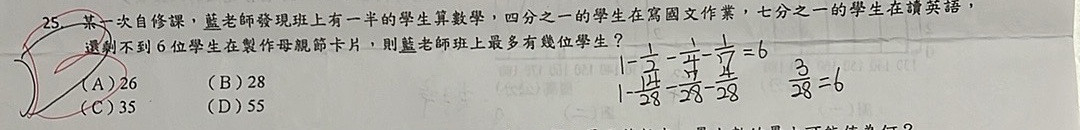 25. 某一次自修課，藍老師發現班上有一半的學生算數學，四分之一的學生在寫國文作業，七分之一的學生在讀英語，
還剩不到6位學生在製作母親節卡片，則藍老師班上最多有幾位學生？
1-1/2-1/4-1/7=6
(A) 26 (B) 28
1-14/28-7/28-4/28 3/28=6
(C) 35 (D) 55